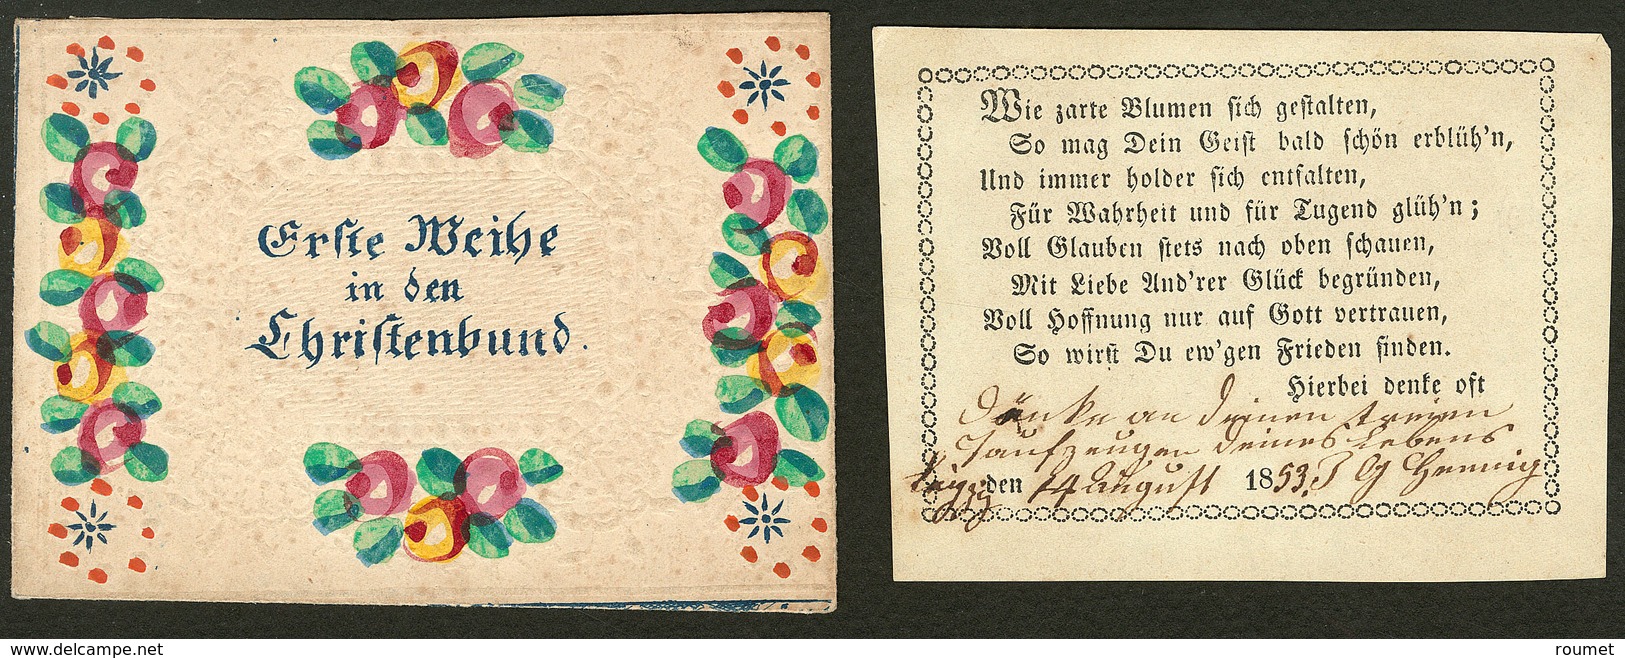 Erste Weihe
in den
Christenbund.
Wie zarte Blumen sich gestalten,
So mag Dein Geist bald schön erblüh'n,
Und immer holder sich entfalten,
Für Wahrheit und für Tugend glüh'n;
Voll Glauben stets nach oben schauen,
Mit Liebe And'rer Glück begründen,
Voll Hoffnung nur auf Gott vertrauen,
So wirst Du ew'gen Frieden finden.
Hierbei denke oft
an Deinen treuen
Taufzeugen Deines Lebens
den 14 August 1853. J G Hennig
www.delcampe.net
roumet